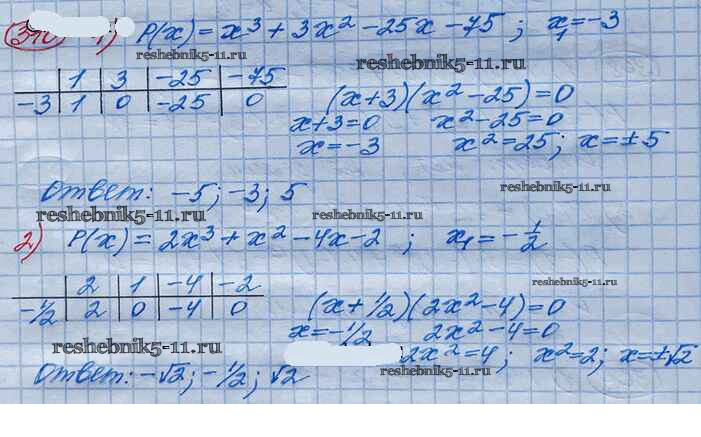 1) P(x) = x³ + 3x² - 25x - 75 ; x₁ = -3
reshebnik5-11.ru
reshebnik5-11.ru
1 3 -25 -75
-3 1 0 -25 0
(x+3)(x² - 25) = 0
x+3=0 x² - 25 = 0
x = -3 x² = 25; x = ± 5
reshebnik5-11.ru
Ответ: -5; -3; 5
reshebnik5-11.ru
reshebnik5-11.ru
2) P(x) = 2x³ + x² - 4x - 2 ; x₁ = - 1/2
reshebnik5-11.ru
2 1 -4 -2
-1/2 2 0 -4 0
(x + 1/2)(2x² - 4) = 0
x = -1/2 2x² - 4 = 0
reshebnik5-11.ru
2x² = 4; x² = 2; x = ±√2
reshebnik5-11.ru
Ответ: -√2; -1/2; √2